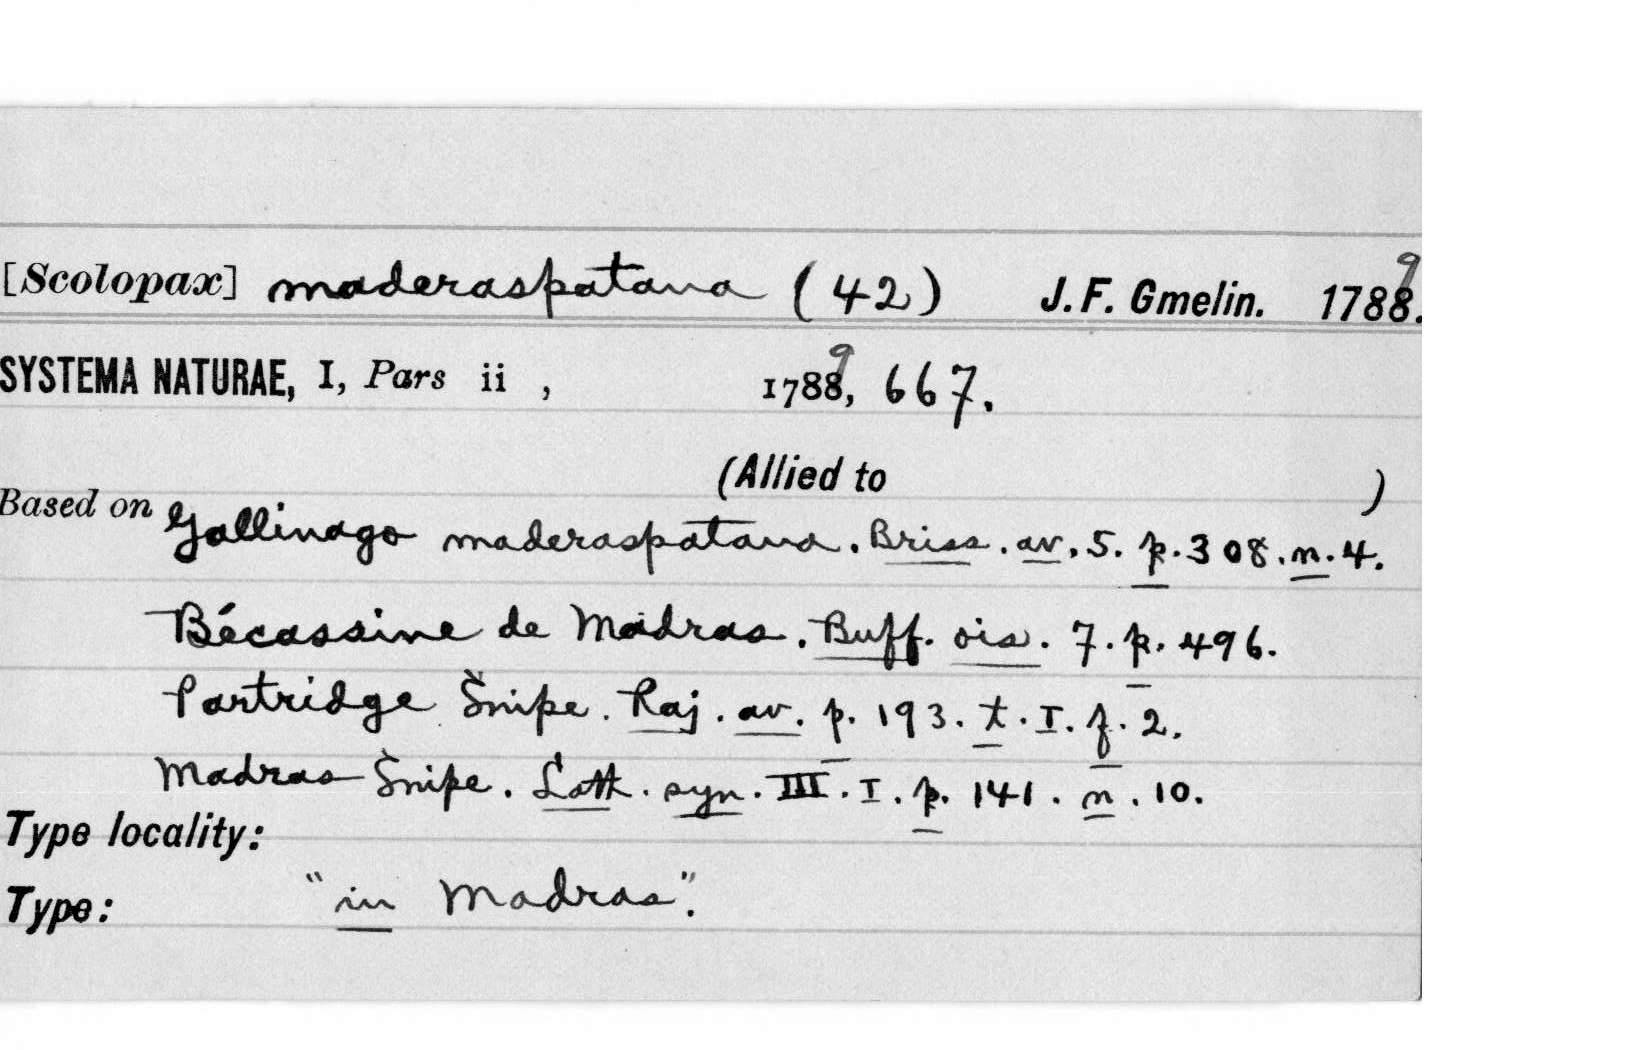 [Scolopax] maderaspatana (42) J. F. Gmelin. 1789.
SYSTEMA NATURAE, I, Pars ii , 1789, 667.
(Allied to )
Based on Gallinago maderaspatana. Briss. av. 5. p. 308. n. 4.
Bécassine de Madras. Buff. ois. 7. p. 496.
Partridge Snipe. Raj. av. p. 193. t. I. f. 2.
Madras Snipe. Lath. syn. III. I. p. 141. n. 10.
Type locality:
Type: "in Madras".